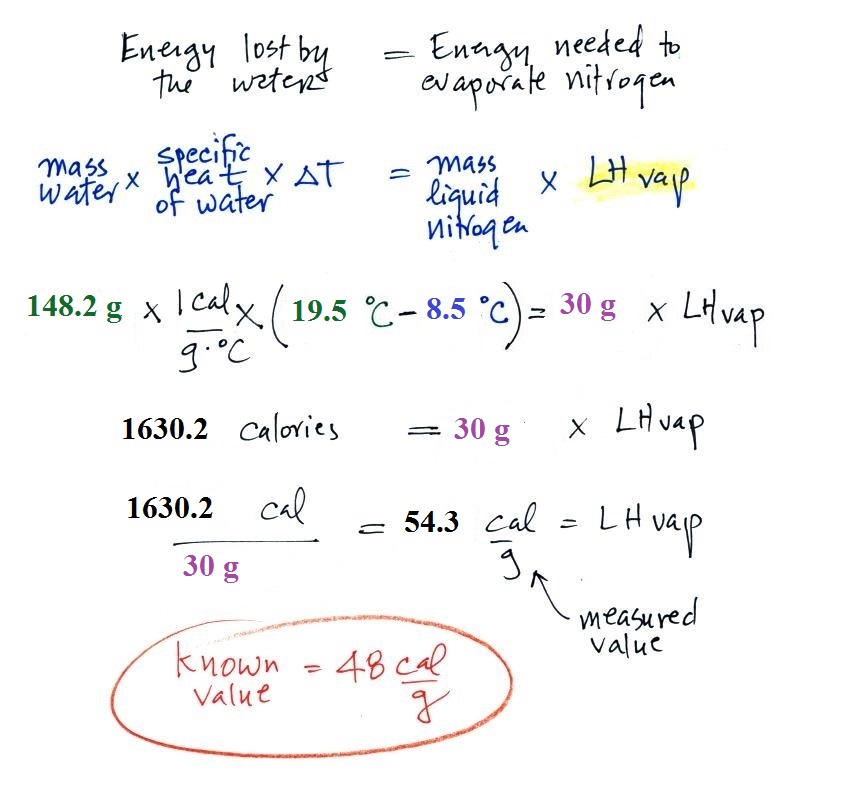 Energy lost by = Energy needed to
the water evaporate nitrogen
mass water x specific heat of water x ΔT = mass liquid nitrogen x LH vap
148.2 g x 1 cal/g·°C x (19.5 °C - 8.5 °C) = 30 g x LH vap
1630.2 calories = 30 g x LH vap
1630.2 cal / 30 g = 54.3 cal/g = LH vap
measured
value
known value = 48 cal/g